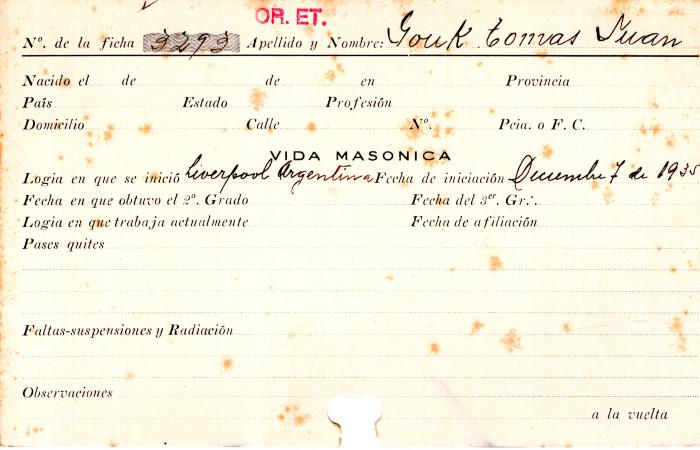 OR. ET.
Nº. de la ficha 3293 Apellido y Nombre: Gouk Tomas Juan
Nacido el de de en Provincia
País Estado Profesión
Domicilio Calle Nº. Pcia. o F. C.
VIDA MASONICA
Logia en que se inició Liverpool Argentina Fecha de iniciación Diciembre 7 de 1935
Fecha en que obtuvo el 2º. Grado Fecha del 3er. Gr∴
Logia en que trabaja actualmente Fecha de afiliación
Pases quites
Faltas-suspensiones y Radiación
Observaciones
a la vuelta